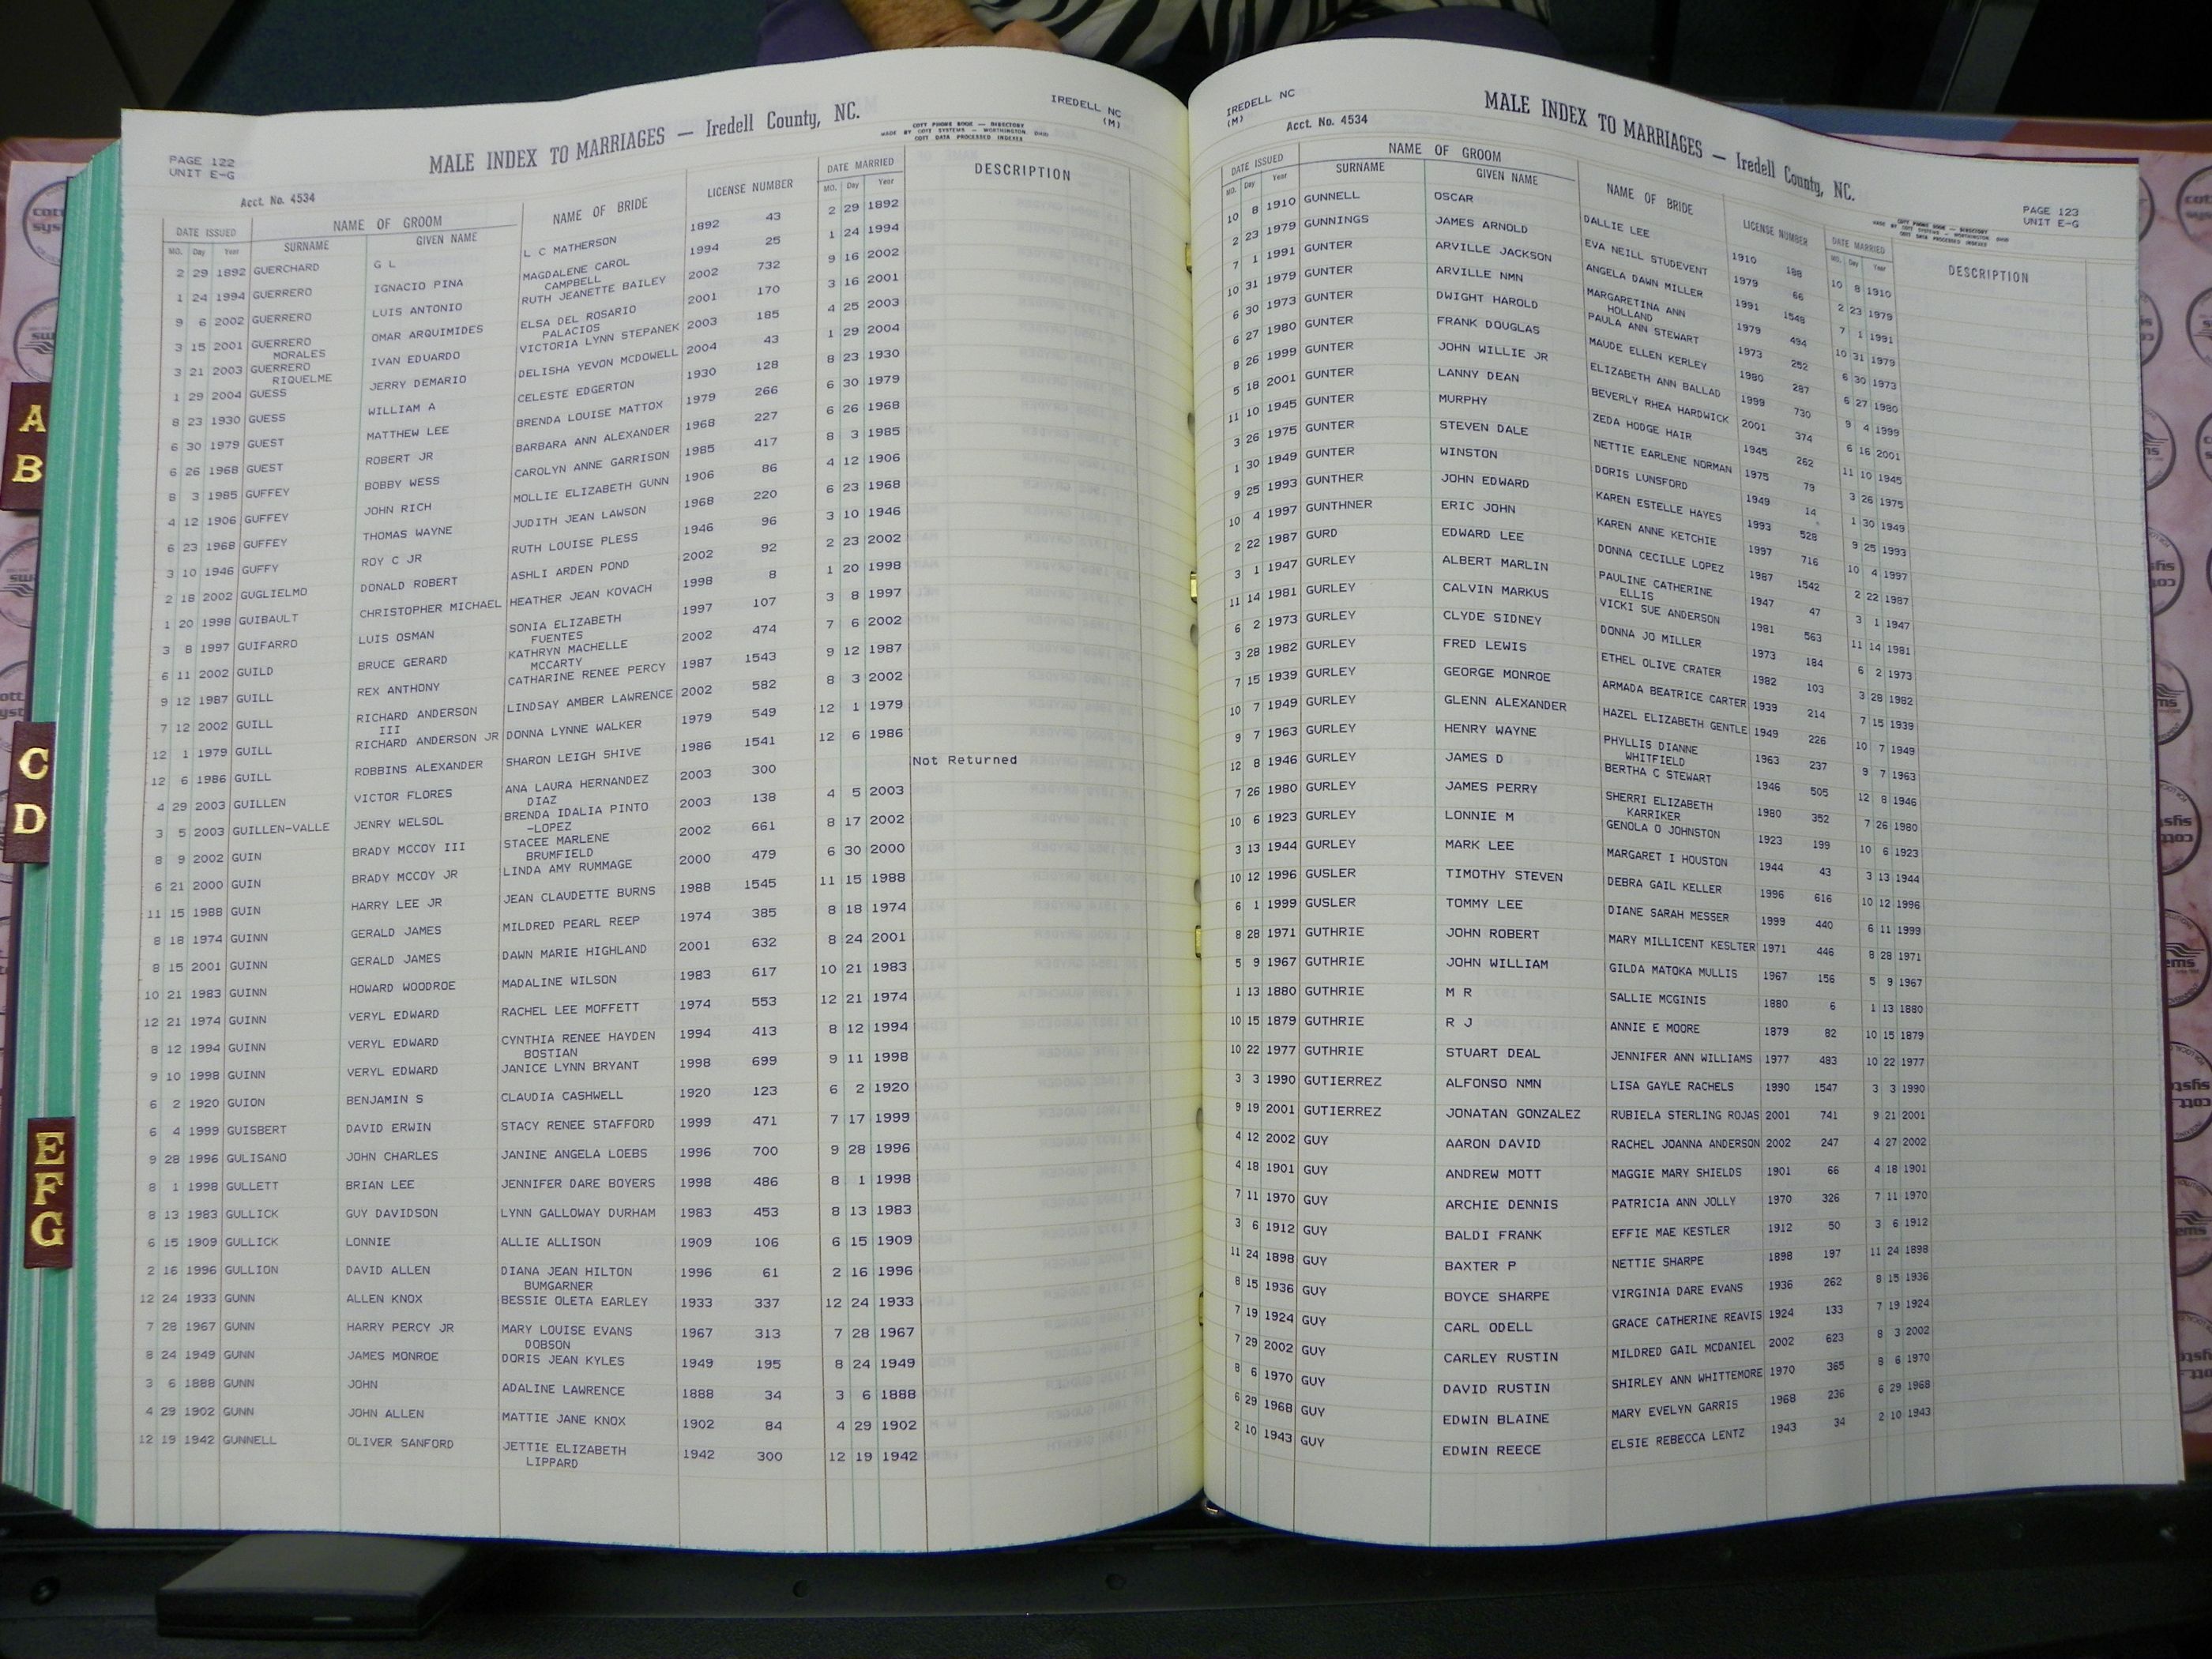 PAGE 122
UNIT E-G
MALE INDEX TO MARRIAGES — Iredell County, NC.
COTT PHONE BOOK — DIRECTORY
MADE BY COTT SYSTEMS — WORTHINGTON OHIO
COTT DATA PROCESSED INDEXES
IREDELL NC
(M)
Acct. No. 4534
DATE ISSUED NAME OF GROOM NAME OF BRIDE LICENSE NUMBER DATE MARRIED DESCRIPTION
MO. Day Year SURNAME GIVEN NAME MO. Day Year
2 29 1892 GUERCHARD G L L C MATHERSON 1892 43 2 29 1892
1 24 1994 GUERRERO IGNACIO PINA MAGDALENE CAROL 1994 25 1 24 1994
CAMPBELL
9 6 2002 GUERRERO LUIS ANTONIO RUTH JEANETTE BAILEY 2002 732 9 16 2002
3 15 2001 GUERRERO OMAR ARQUIMIDES ELSA DEL ROSARIO 2001 170 3 16 2001
MORALES PALACIOS
3 21 2003 GUERRERO IVAN EDUARDO VICTORIA LYNN STEPANEK 2003 185 4 25 2003
RIQUELME
1 29 2004 GUESS JERRY DEMARIO DELISHA YEVON MCDOWELL 2004 43 1 29 2004
8 23 1930 GUESS WILLIAM A CELESTE EDGERTON 1930 128 8 23 1930
6 30 1979 GUEST MATTHEW LEE BRENDA LOUISE MATTOX 1979 266 6 30 1979
6 26 1968 GUEST ROBERT JR BARBARA ANN ALEXANDER 1968 227 6 26 1968
8 3 1985 GUFFEY BOBBY WESS CAROLYN ANNE GARRISON 1985 417 8 3 1985
4 12 1906 GUFFEY JOHN RICH MOLLIE ELIZABETH GUNN 1906 86 4 12 1906
6 23 1968 GUFFEY THOMAS WAYNE JUDITH JEAN LAWSON 1968 220 6 23 1968
3 10 1946 GUFFY ROY C JR RUTH LOUISE PLESS 1946 96 3 10 1946
2 18 2002 GUGLIELMO DONALD ROBERT ASHLI ARDEN POND 2002 92 2 23 2002
1 20 1998 GUIBAULT CHRISTOPHER MICHAEL HEATHER JEAN KOVACH 1998 8 1 20 1998
3 8 1997 GUIFARRO LUIS OSMAN SONIA ELIZABETH 1997 107 3 8 1997
FUENTES
6 11 2002 GUILD BRUCE GERARD KATHRYN MACHELLE 2002 474 7 6 2002
MCCARTY
9 12 1987 GUILL REX ANTHONY CATHARINE RENEE PERCY 1987 1543 9 12 1987
7 12 2002 GUILL RICHARD ANDERSON LINDSAY AMBER LAWRENCE 2002 582 8 3 2002
III
12 1 1979 GUILL RICHARD ANDERSON JR DONNA LYNNE WALKER 1979 549 12 1 1979
12 6 1986 GUILL ROBBINS ALEXANDER SHARON LEIGH SHIVE 1986 1541 12 6 1986
4 29 2003 GUILLEN VICTOR FLORES ANA LAURA HERNANDEZ 2003 300 Not Returned
DIAZ
3 5 2003 GUILLEN-VALLE JENRY WELSOL BRENDA IDALIA PINTO 2003 138 4 5 2003
-LOPEZ
8 9 2002 GUIN BRADY MCCOY III STACEE MARLENE 2002 661 8 17 2002
BRUMFIELD
6 21 2000 GUIN BRADY MCCOY JR LINDA AMY RUMMAGE 2000 479 6 30 2000
11 15 1988 GUIN HARRY LEE JR JEAN CLAUDETTE BURNS 1988 1545 11 15 1988
8 18 1974 GUINN GERALD JAMES MILDRED PEARL REEP 1974 385 8 18 1974
8 15 2001 GUINN GERALD JAMES DAWN MARIE HIGHLAND 2001 632 8 24 2001
10 21 1983 GUINN HOWARD WOODROE MADALINE WILSON 1983 617 10 21 1983
12 21 1974 GUINN VERYL EDWARD RACHEL LEE MOFFETT 1974 553 12 21 1974
8 12 1994 GUINN VERYL EDWARD CYNTHIA RENEE HAYDEN 1994 413 8 12 1994
BOSTIAN
9 10 1998 GUINN VERYL EDWARD JANICE LYNN BRYANT 1998 699 9 11 1998
6 2 1920 GUION BENJAMIN S CLAUDIA CASHWELL 1920 123 6 2 1920
6 4 1999 GUISBERT DAVID ERWIN STACY RENEE STAFFORD 1999 471 7 17 1999
9 28 1996 GULISANO JOHN CHARLES JANINE ANGELA LOEBS 1996 700 9 28 1996
8 1 1998 GULLETT BRIAN LEE JENNIFER DARE BOYERS 1998 486 8 1 1998
8 13 1983 GULLICK GUY DAVIDSON LYNN GALLOWAY DURHAM 1983 453 8 13 1983
6 15 1909 GULLICK LONNIE ALLIE ALLISON 1909 106 6 15 1909
2 16 1996 GULLION DAVID ALLEN DIANA JEAN HILTON 1996 61 2 16 1996
BUMGARNER
12 24 1933 GUNN ALLEN KNOX BESSIE OLETA EARLEY 1933 337 12 24 1933
7 28 1967 GUNN HARRY PERCY JR MARY LOUISE EVANS 1967 313 7 28 1967
DOBSON
8 24 1949 GUNN JAMES MONROE DORIS JEAN KYLES 1949 195 8 24 1949
3 6 1888 GUNN JOHN ADALINE LAWRENCE 1888 34 3 6 1888
4 29 1902 GUNN JOHN ALLEN MATTIE JANE KNOX 1902 84 4 29 1902
12 19 1942 GUNNELL OLIVER SANFORD JETTIE ELIZABETH 1942 300 12 19 1942
LIPPARD
IREDELL NC
(M)
Acct. No. 4534
MALE INDEX TO MARRIAGES — Iredell County, NC.
PAGE 123
UNIT E-G
COTT PHONE BOOK — DIRECTORY
MADE BY COTT SYSTEMS — WORTHINGTON OHIO
COTT DATA PROCESSED INDEXES
DATE ISSUED NAME OF GROOM NAME OF BRIDE LICENSE NUMBER DATE MARRIED DESCRIPTION
MO. Day Year SURNAME GIVEN NAME MO. Day Year
10 8 1910 GUNNELL OSCAR DALLIE LEE 1910 188 10 8 1910
2 23 1979 GUNNINGS JAMES ARNOLD EVA NEILL STUDEVENT 1979 66 2 23 1979
7 1 1991 GUNTER ARVILLE JACKSON ANGELA DAWN MILLER 1991 1548 7 1 1991
10 31 1979 GUNTER ARVILLE NMN MARGARETINA ANN 1979 494 10 31 1979
HOLLAND
6 30 1973 GUNTER DWIGHT HAROLD PAULA ANN STEWART 1973 252 6 30 1973
6 27 1980 GUNTER FRANK DOUGLAS MAUDE ELLEN KERLEY 1980 287 6 27 1980
8 26 1999 GUNTER JOHN WILLIE JR ELIZABETH ANN BALLAD 1999 730 9 4 1999
5 18 2001 GUNTER LANNY DEAN BEVERLY RHEA HARDWICK 2001 374 6 16 2001
11 10 1945 GUNTER MURPHY ZEDA HODGE HAIR 1945 262 11 10 1945
3 26 1975 GUNTER STEVEN DALE NETTIE EARLENE NORMAN 1975 79 3 26 1975
1 30 1949 GUNTER WINSTON DORIS LUNSFORD 1949 14 1 30 1949
9 25 1993 GUNTHER JOHN EDWARD KAREN ESTELLE HAYES 1993 528 9 25 1993
10 4 1997 GUNTHNER ERIC JOHN KAREN ANNE KETCHIE 1997 716 10 4 1997
2 22 1987 GURD EDWARD LEE DONNA CECILLE LOPEZ 1987 1542 2 22 1987
3 1 1947 GURLEY ALBERT MARLIN PAULINE CATHERINE 1947 47 3 1 1947
ELLIS
11 14 1981 GURLEY CALVIN MARKUS VICKI SUE ANDERSON 1981 563 11 14 1981
6 2 1973 GURLEY CLYDE SIDNEY DONNA JO MILLER 1973 184 6 2 1973
3 28 1982 GURLEY FRED LEWIS ETHEL OLIVE CRATER 1982 103 3 28 1982
7 15 1939 GURLEY GEORGE MONROE ARMADA BEATRICE CARTER 1939 214 7 15 1939
10 7 1949 GURLEY GLENN ALEXANDER HAZEL ELIZABETH GENTLE 1949 226 10 7 1949
9 7 1963 GURLEY HENRY WAYNE PHYLLIS DIANNE 1963 237 9 7 1963
WHITFIELD
12 8 1946 GURLEY JAMES D BERTHA C STEWART 1946 505 12 8 1946
7 26 1980 GURLEY JAMES PERRY SHERRI ELIZABETH 1980 352 7 26 1980
KARRIKER
10 6 1923 GURLEY LONNIE M GENOLA O JOHNSTON 1923 199 10 6 1923
3 13 1944 GURLEY MARK LEE MARGARET I HOUSTON 1944 43 3 13 1944
10 12 1996 GUSLER TIMOTHY STEVEN DEBRA GAIL KELLER 1996 616 10 12 1996
6 1 1999 GUSLER TOMMY LEE DIANE SARAH MESSER 1999 440 6 11 1999
8 28 1971 GUTHRIE JOHN ROBERT MARY MILLICENT KESLTER 1971 446 8 28 1971
5 9 1967 GUTHRIE JOHN WILLIAM GILDA MATOKA MULLIS 1967 156 5 9 1967
1 13 1880 GUTHRIE M R SALLIE MCGINIS 1880 6 1 13 1880
10 15 1879 GUTHRIE R J ANNIE E MOORE 1879 82 10 15 1879
10 22 1977 GUTHRIE STUART DEAL JENNIFER ANN WILLIAMS 1977 483 10 22 1977
3 3 1990 GUTIERREZ ALFONSO NMN LISA GAYLE RACHELS 1990 1547 3 3 1990
9 19 2001 GUTIERREZ JONATAN GONZALEZ RUBIELA STERLING ROJAS 2001 741 9 21 2001
4 12 2002 GUY AARON DAVID RACHEL JOANNA ANDERSON 2002 247 4 27 2002
4 18 1901 GUY ANDREW MOTT MAGGIE MARY SHIELDS 1901 66 4 18 1901
7 11 1970 GUY ARCHIE DENNIS PATRICIA ANN JOLLY 1970 326 7 11 1970
3 6 1912 GUY BALDI FRANK EFFIE MAE KESTLER 1912 50 3 6 1912
11 24 1898 GUY BAXTER P NETTIE SHARPE 1898 197 11 24 1898
8 15 1936 GUY BOYCE SHARPE VIRGINIA DARE EVANS 1936 262 8 15 1936
7 19 1924 GUY CARL ODELL GRACE CATHERINE REAVIS 1924 133 7 19 1924
7 29 2002 GUY CARLEY RUSTIN MILDRED GAIL MCDANIEL 2002 623 8 3 2002
8 6 1970 GUY DAVID RUSTIN SHIRLEY ANN WHITTEMORE 1970 365 8 6 1970
6 29 1968 GUY EDWIN BLAINE MARY EVELYN GARRIS 1968 236 6 29 1968
2 10 1943 GUY EDWIN REECE ELSIE REBECCA LENTZ 1943 34 2 10 1943
A
B
C
D
E
F
G